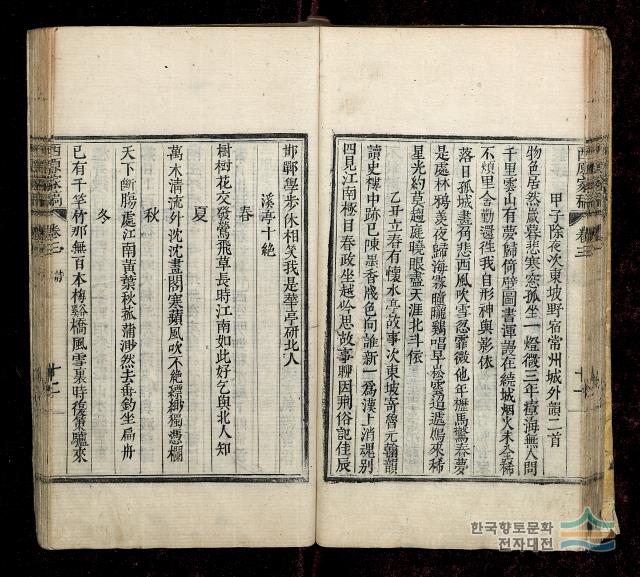 甲子除夜次東坡野宿常州城外韻二首
物色居然歲暮悲寒窓孤坐一燈微三年瘴海無人問
千里雲山有夢歸倚壁圖書渾謾在繞城烟火未全稀
不煩里舍勤還往我自形神與影依
落日孤城晝角悲西風吹雪忽霏微他年櫪馬驚春夢
是處林鴉羨夜歸海霧曈曨鷄唱早嵩雲迢遞鴈來稀
星光約莫趨庭曉眼盡天涯北斗依
乙丑立春有懷水亭故事次東坡寄魯元翰韻
讀史樓中跡已陳墨香牋色向誰新一爲漢上消魂别
四見江南極目春政坐越吟思故事聊因荆俗記佳辰
邯鄲學步休相笑我是華亭硏北人
溪亭十絶
春
樹樹花交發鶯飛草長時江南如此好乞與北人知
夏
萬木淸流外沈沈畫閣寒蘋風吹不絶縹緲獨憑欄
秋
天下斷腸處江南黄葉秋菰蒲渺然去垂釣坐扁舟
冬
已有千竿竹那無百本梅谿橋風雪裏時復策驢來
卷三
詩
十二
한국향토문화
전자대전